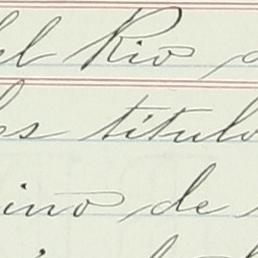 el Rio
es titulo
ino de